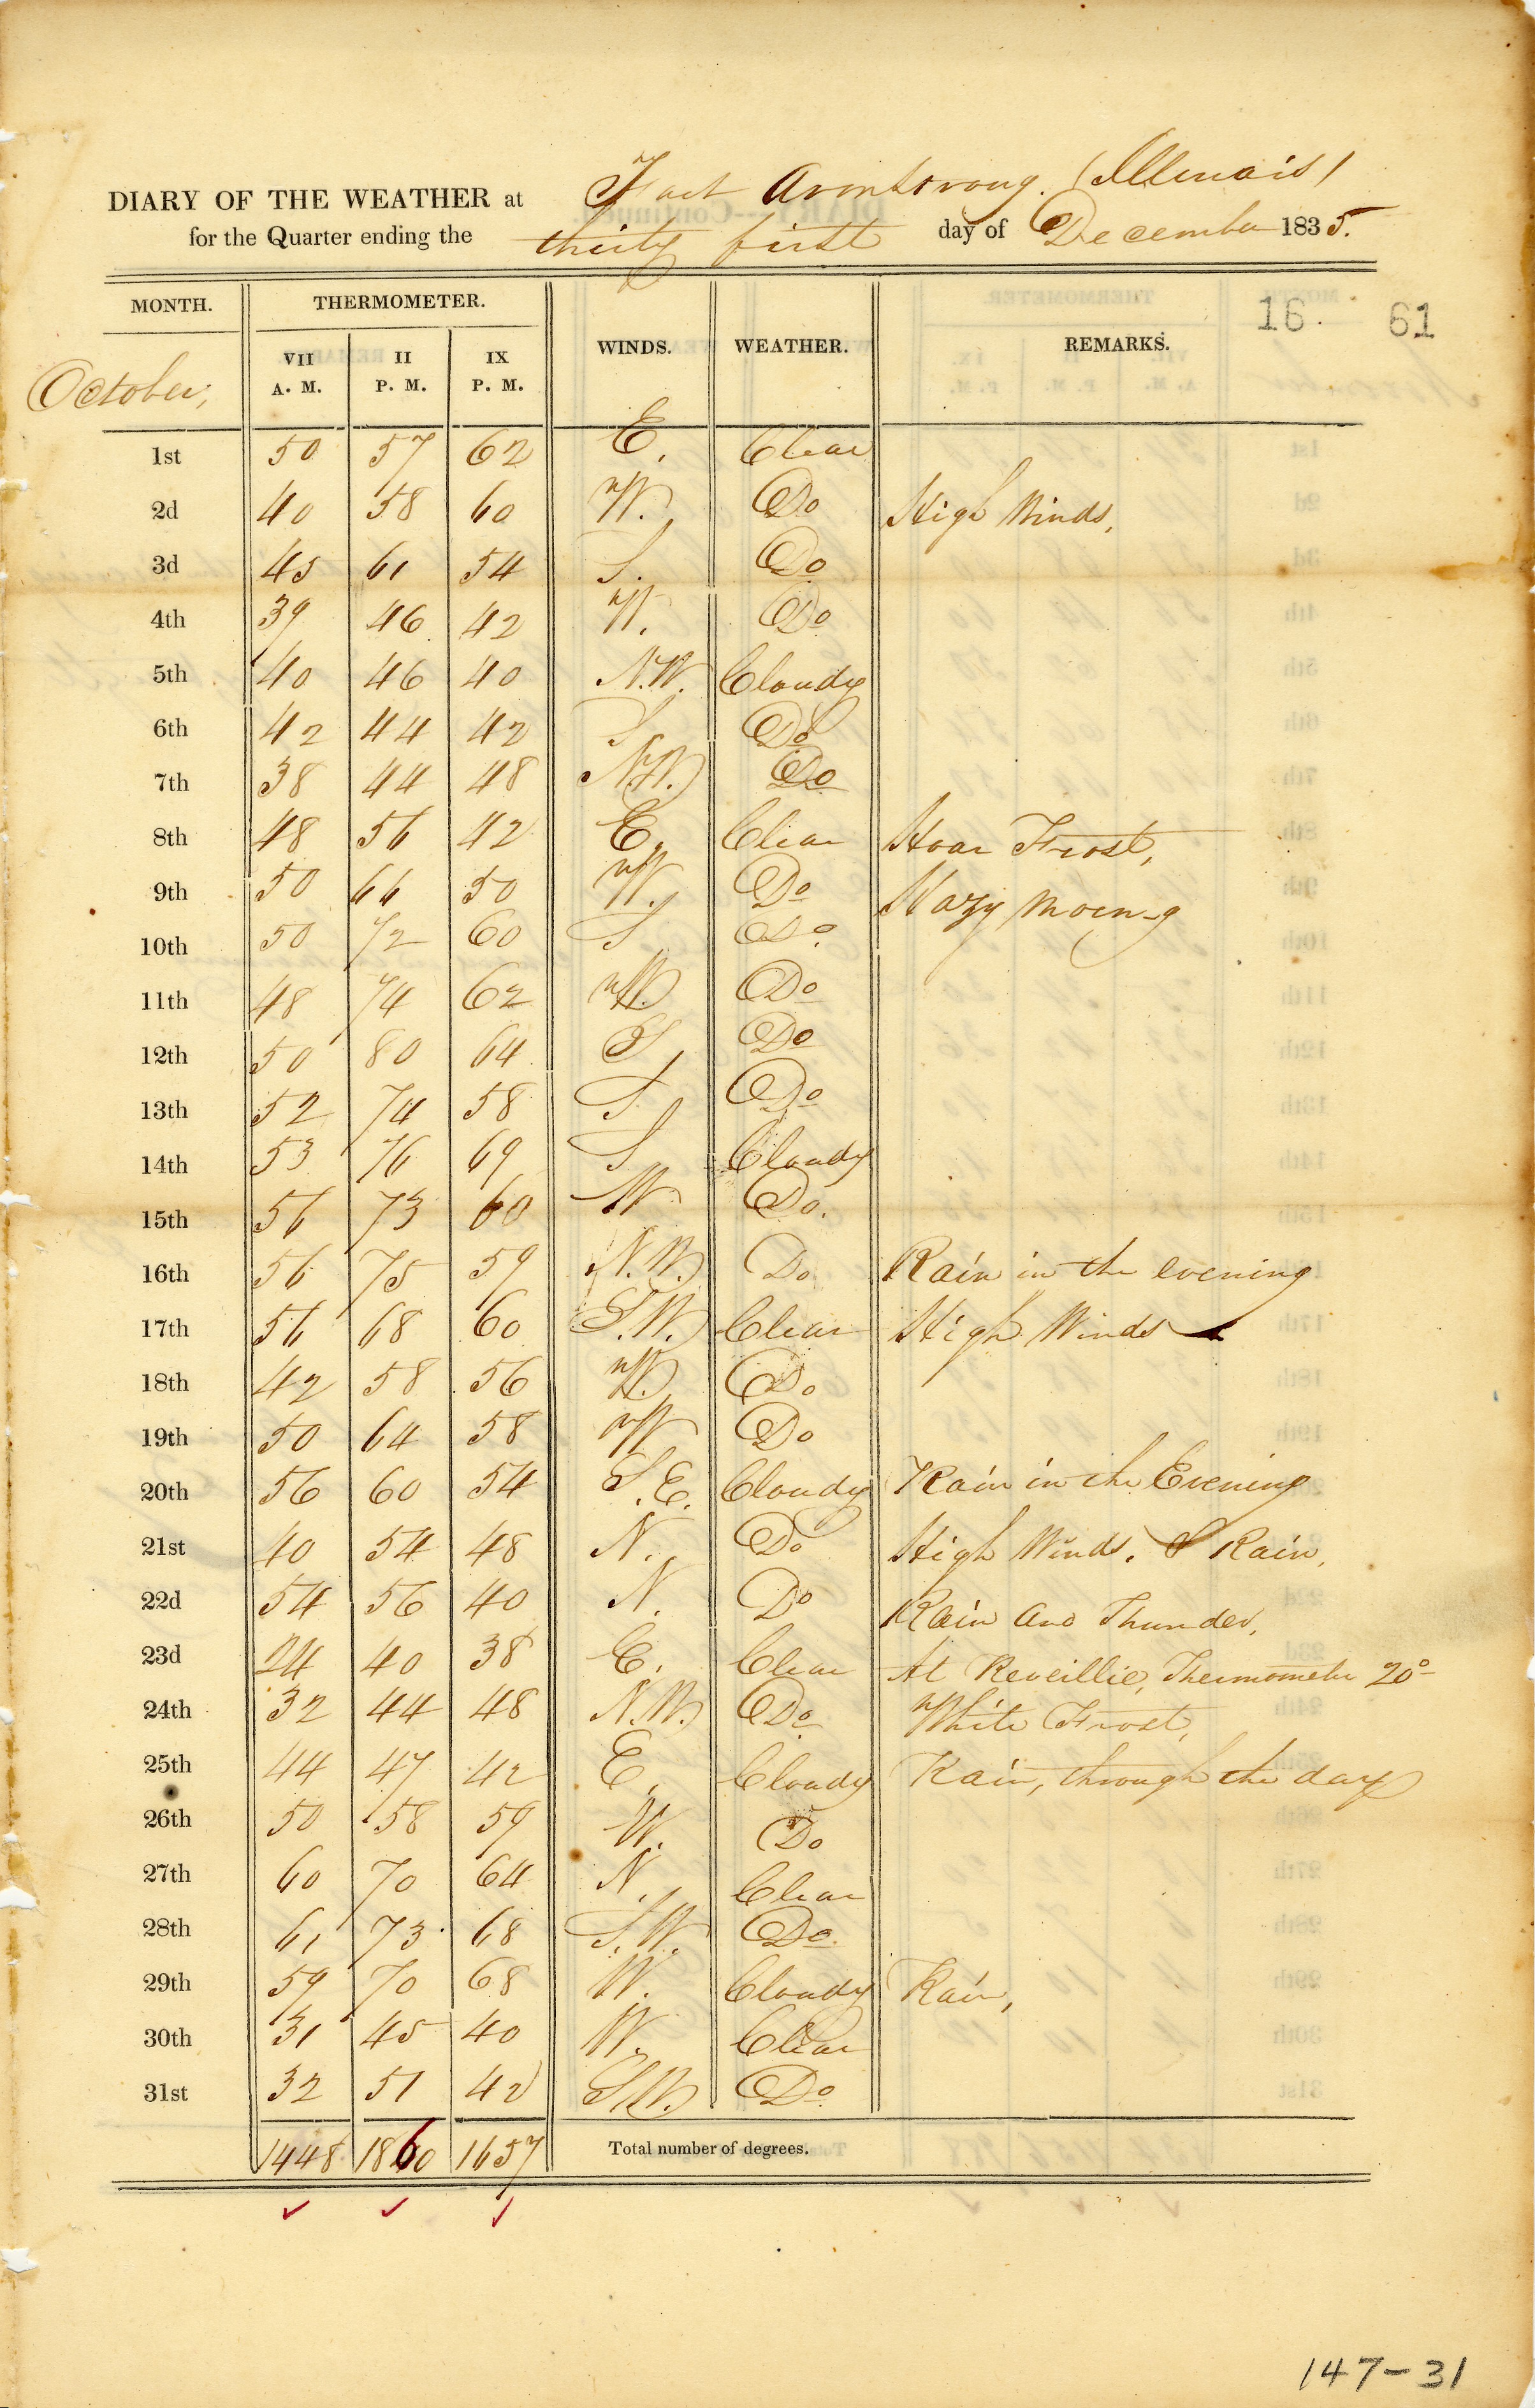 DIARY OF THE WEATHER at Fort Armstrong. (Illinois)
for the Quarter ending the thirty first day of December 1835.
MONTH. THERMOMETER. WINDS. WEATHER. REMARKS. 16. 61
October, VII A. M. II P. M. IX P. M.
1st 50 57 62 E. Clear
2d 40 58 60 W. Do High Winds,
3d 45 61 54 S. Do
4th 39 46 42 W. Do
5th 40 46 40 N.W. Cloudy
6th 42 44 42 S Do
7th 38 44 48 N.W. Do
8th 48 56 42 E. Clear Hoar Frost,
9th 50 66 50 W. Do Hazy Morn-g
10th 50 72 60 S Do
11th 48 74 62 W. Do
12th 50 80 64 S Do
13th 52 74 58 S Do
14th 53 76 69 S Cloudy
15th 56 73 60 W Do.
16th 56 75 59 N.W. Do Rain in the evening
17th 56 68 60 S.W. Clear High Winds
18th 42 58 56 W. Do
19th 50 64 58 W Do
20th 56 60 54 S.E. Cloudy Rain in the Evening
21st 40 54 48 N. Do High Winds. & Rain,
22d 54 56 40 N. Do Rain and Thunder,
23d 24 40 38 E. Clear At Reveillie, Thermometer 20°
24th 32 44 48 N.W. Do White Frost,
25th 44 47 42 E. Cloudy Rain, through the day
26th 50 58 59 W. Do
27th 60 70 64 N. Clear
28th 61 73 68 S.W. Do
29th 59 70 68 W. Cloudy Rain,
30th 31 45 40 W. Clear
31st 32 51 42 S.W. Do
1448 1860 1657 Total number of degrees.
147-31